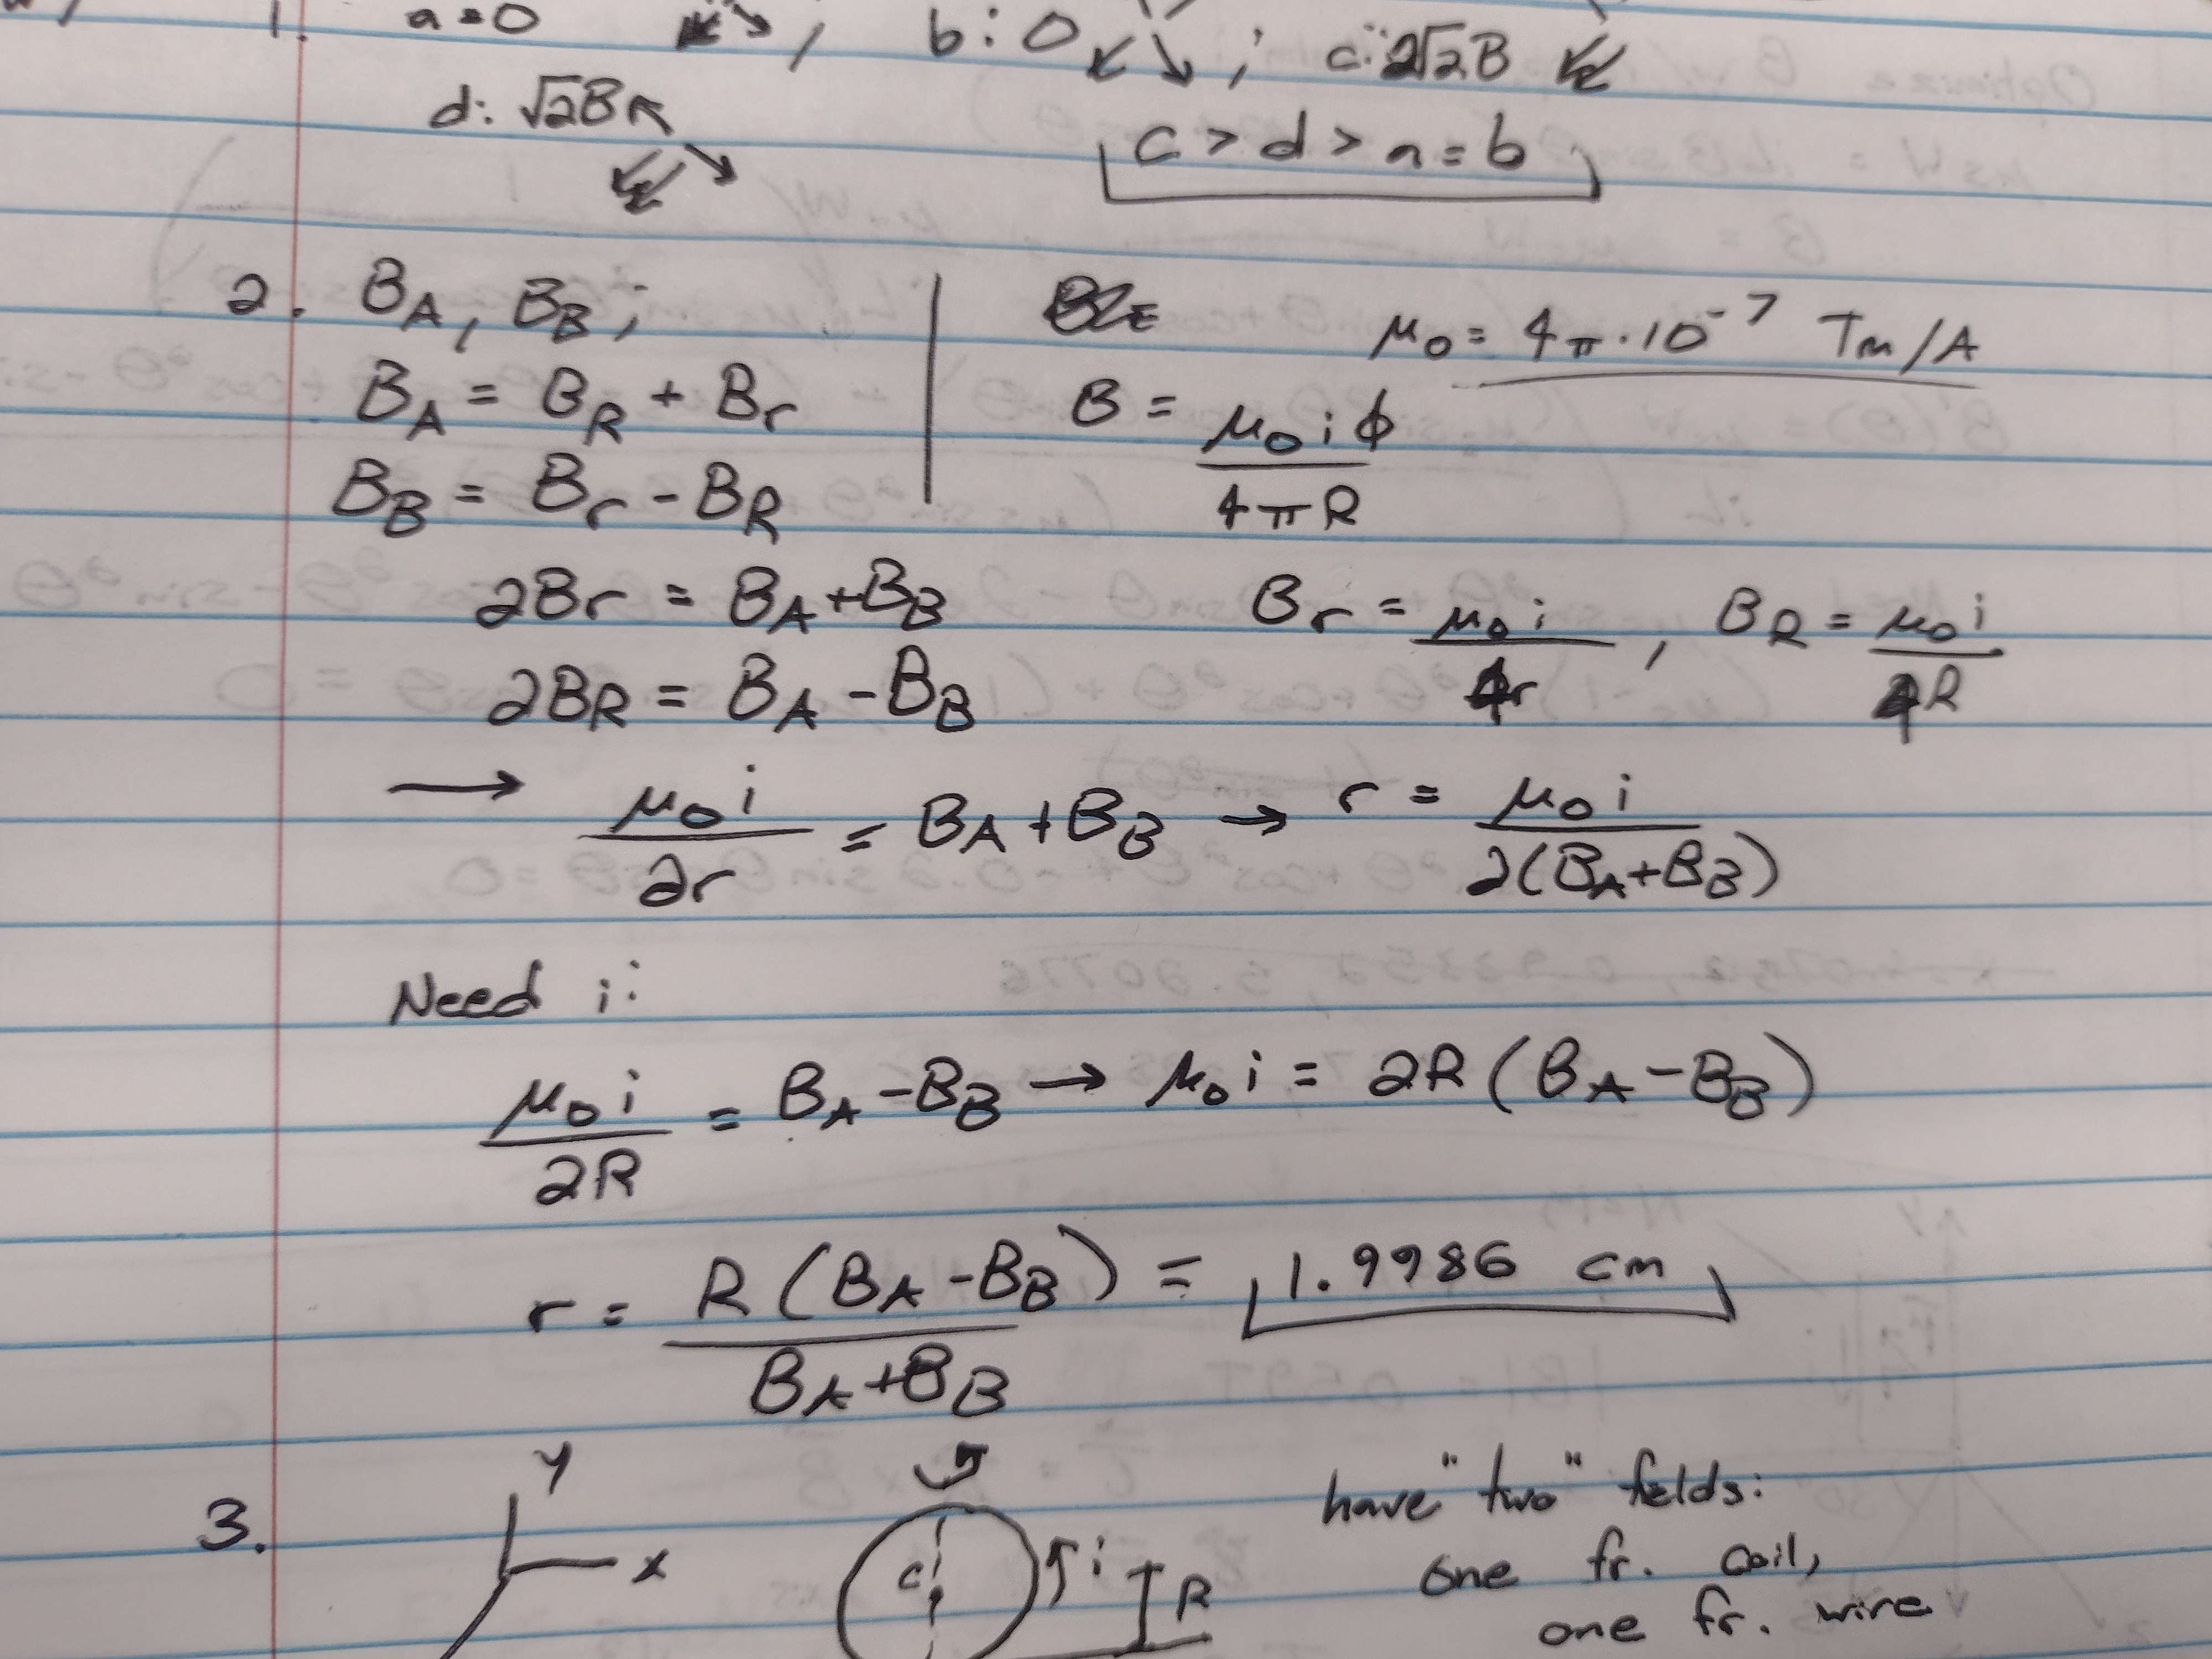 1. a=0 ↙↘, b: 0 ↙↘; c: 2√2B ↙
d: √2B ↖
↙↘
c > d > a = b
2. B_A, B_B;
B_A = B_R + B_r
B_B = B_r - B_R
μ₀ = 4π·10⁻⁷ Tm/A
B = μ₀iϕ / 4πR
2B_r = B_A + B_B
B_r = μ₀i / 4r, B_R = μ₀i / 4R
2B_R = B_A - B_B
→ μ₀i / 2r = B_A + B_B → r = μ₀i / 2(B_A + B_B)
Need i:
μ₀i / 2R = B_A - B_B → μ₀i = 2R(B_A - B_B)
r = R(B_A - B_B) / B_A + B_B = 1.9986 cm
3.
y
x
C
i
R
have "two" fields:
one fr. coil,
one fr. wire